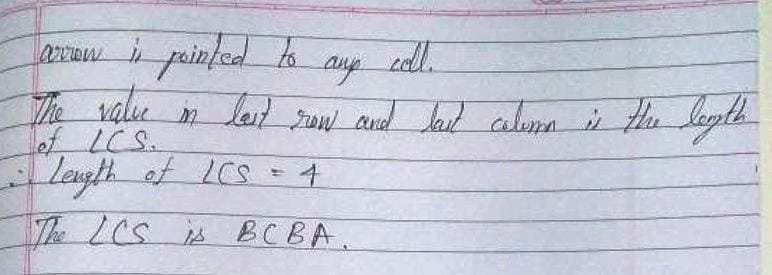 arrow is pointed to any cell.
The value in last row and last column is the length
of LCS.
∴ Length of LCS = 4
The LCS is BCBA.